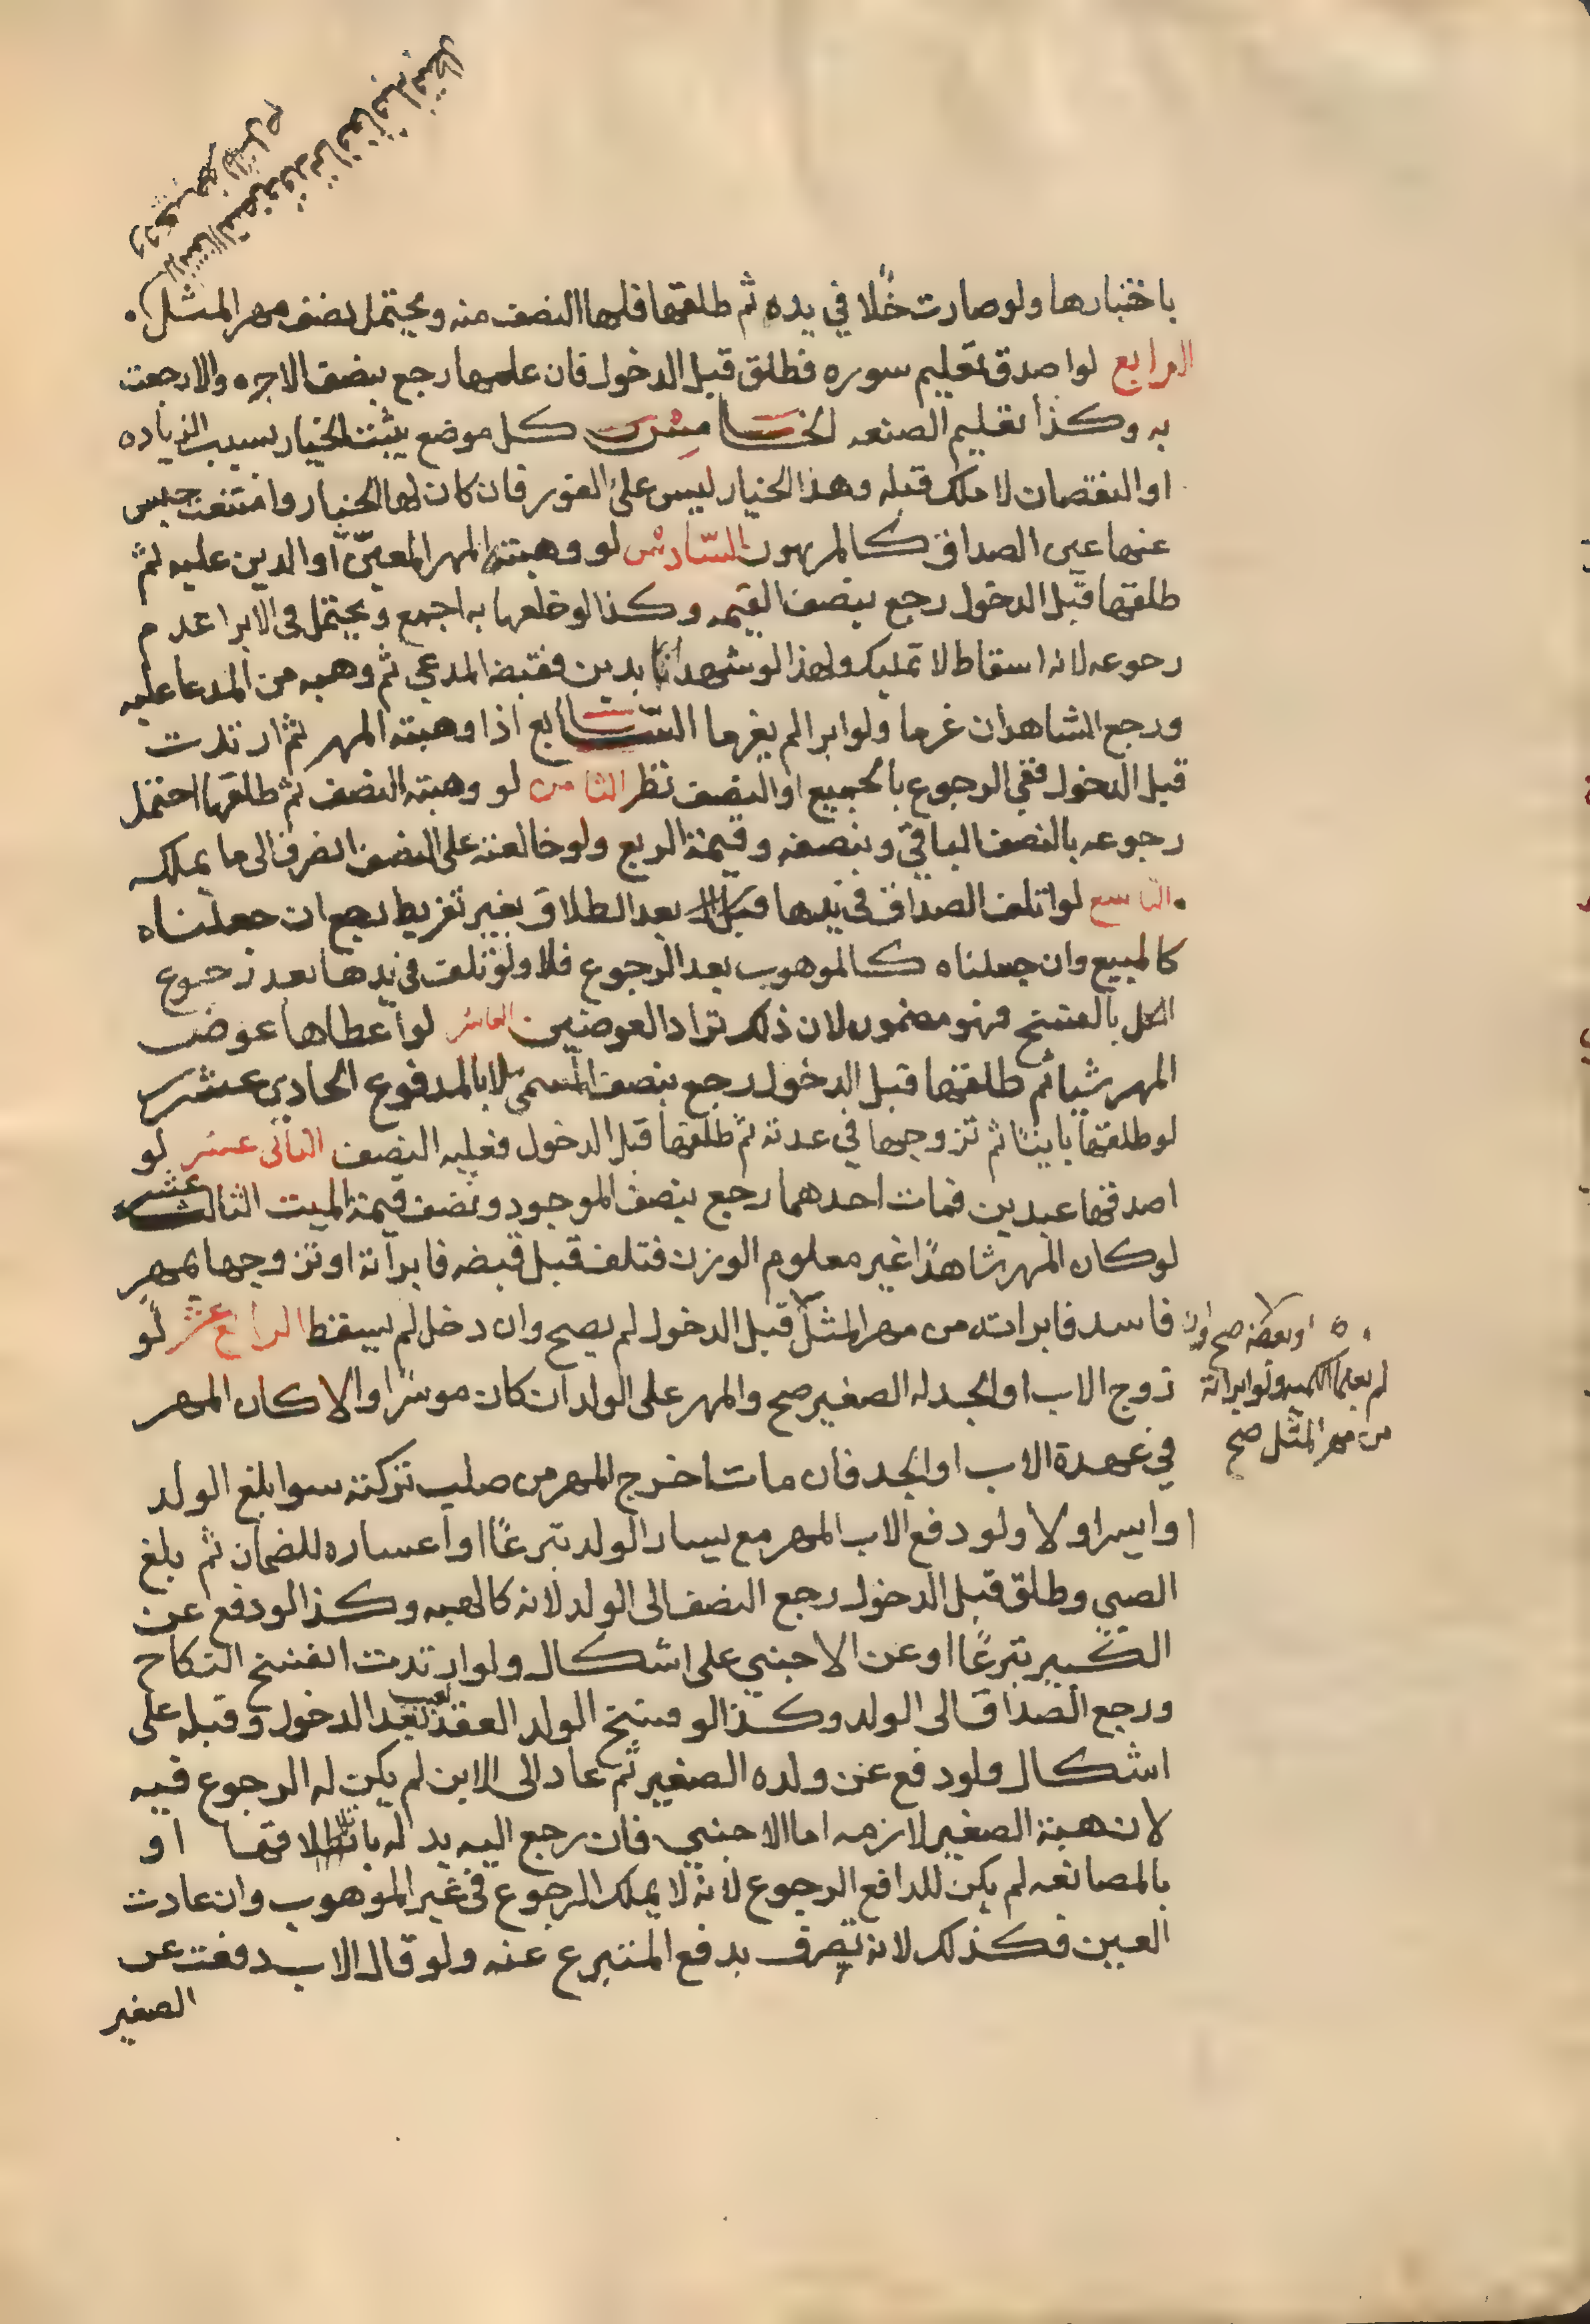 باختيارها ولو صارت خلًا في يده ثم طلقها فلها النصف منه ويحتمل نصف مهر المثل
الرابع لو اصدق تعليم سوره فطلق قبل الدخول فان علمها رجع بنصف الاجره والا رجعت
به وكذا تعليم الصنعه الخامس كل موضع يثبت الخيار بسبب الزياده
او النقصان لا ملك قبله وهذا الخيار ليس على الفور فان كان لها الخيار وامتنعت حبس
عنها عين الصداق كالمرهون السّادس لو وهبته المهر المعيّن او الدين عليه ثم
طلقها قبل الدخول رجع بنصف القيمه وكذا لو خلعها به اجمع ويحتمل في الابرا عدم
رجوعه لانه اسقاط لا تمليك ولهذا لو شهدا بدين فقبضه المدعي ثم وهبه من المدعا عليه
ورجع الشاهدان غرما ولو ابرا لم يغرما السّابع اذا وهبته المهر ثم ارتدت
قبل الدخول ففي الرجوع بالجميع او النصف نظر الثامن لو وهبته النصف ثم طلقها احتمل
رجوعه بالنصف الباقي وبنصفه وقيمة الربع ولو خالعته على النصف انصرف الى ما يملكه
التاسع لو اتلف الصداق في يدها بعد الطلاق بغير تفريط رجع ان جعلناه
كالمبيع وان جعلناه كالموهوب بعد الرجوع فلا ولو تلفت في يدها بعد رجوع
الكل بالفسخ فهو مضمون لان ذلك تراد العوضين العاشر لو اعطاها عوض
المهر شيا ثم طلقها قبل الدخول رجع بنصف المسمى لا بالمدفوع الحادي عشر
لو طلقها باينًا ثم تزوجها في عدته ثم طلقها قبل الدخول فعليه النصف الثاني عشر لو
اصدقها عبدين فمات احدهما رجع بنصف الموجود ونصف قيمة الميت الثالث عشر
لو كان المهر شاهدًا غير معلوم الوزن فتلف قبل قبضه فابراته او تزوجها بمهر
فاسد فابراته من مهر المثل قبل الدخول لم يصح وان دخل لم يسقط الرابع عشر لو
زوج الاب او الجد له الصغير صح والمهر على الولد ان كان موسرًا والا كان المهر
في عهدة الاب او الجد فان ماتا اخرج المهر من صلب تركته سوا بلغ الولد
او ايسر او لا ولو دفع الاب المهر مع يسار الولد تبرعًا او اعساره للضمان ثم بلغ
الصبي وطلق قبل الدخول رجع النصف الى الولد لانه كالهبه وكذا لو دفع عن
الكبير تبرعًا او عن الاجنبي على اشكال ولو ارتدت انفسخ النكاح
ورجع الصداق الى الولد وكذا لو فسخ الولد العقد لعيب بعد الدخول وقبله على
اشكال ولو دفع عن ولده الصغير ثم عاد الى الابن لم يكن له الرجوع فيه
لان هبة الصغير لازمه اما الاجنبي فان رجع اليه بدله باتلافها او
بالمصانعه لم يكن للدافع الرجوع لانه لا يملك الرجوع في غير الموهوب وان عادت
العين فكذلك لانه تصرف بدفع المتبرع عنه ولو قال الاب دفعت عن
الصغير
او بعضه صح وان
لم يعلما الكميه ولو ابراته
من مهر المثل صح